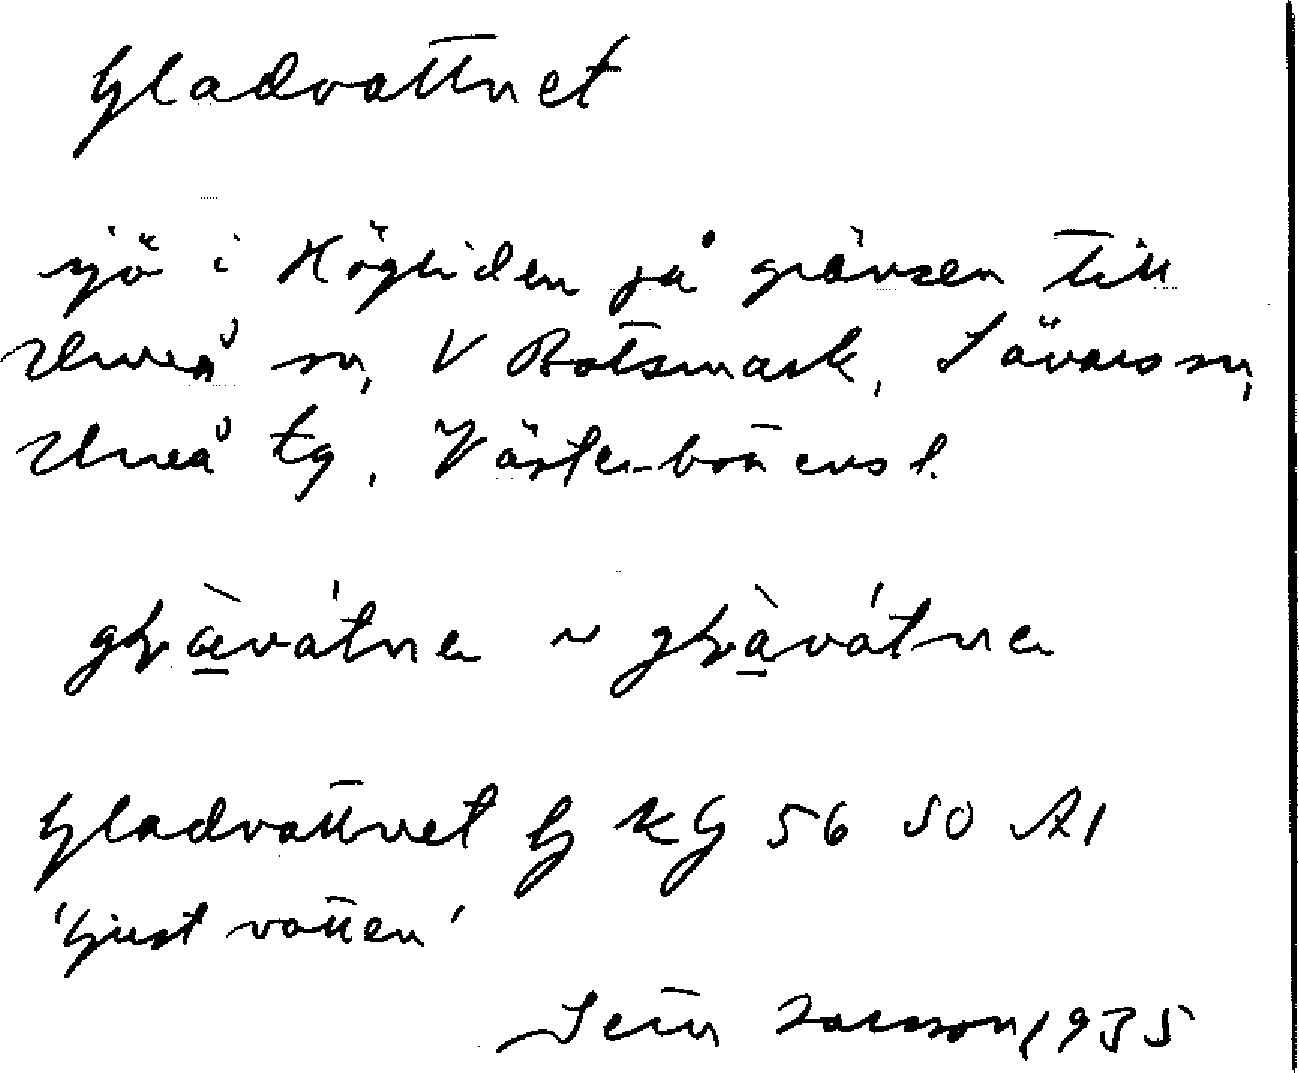 Gladvattnet
sjö i Högliden på gränsen till
Umeå sn, V Botsmark, Sävars sn,
Umeå tg, Västerbottens l.
Gladvattnet G KG 56 SO A1
'ljust vatten'
Larsson, 1935